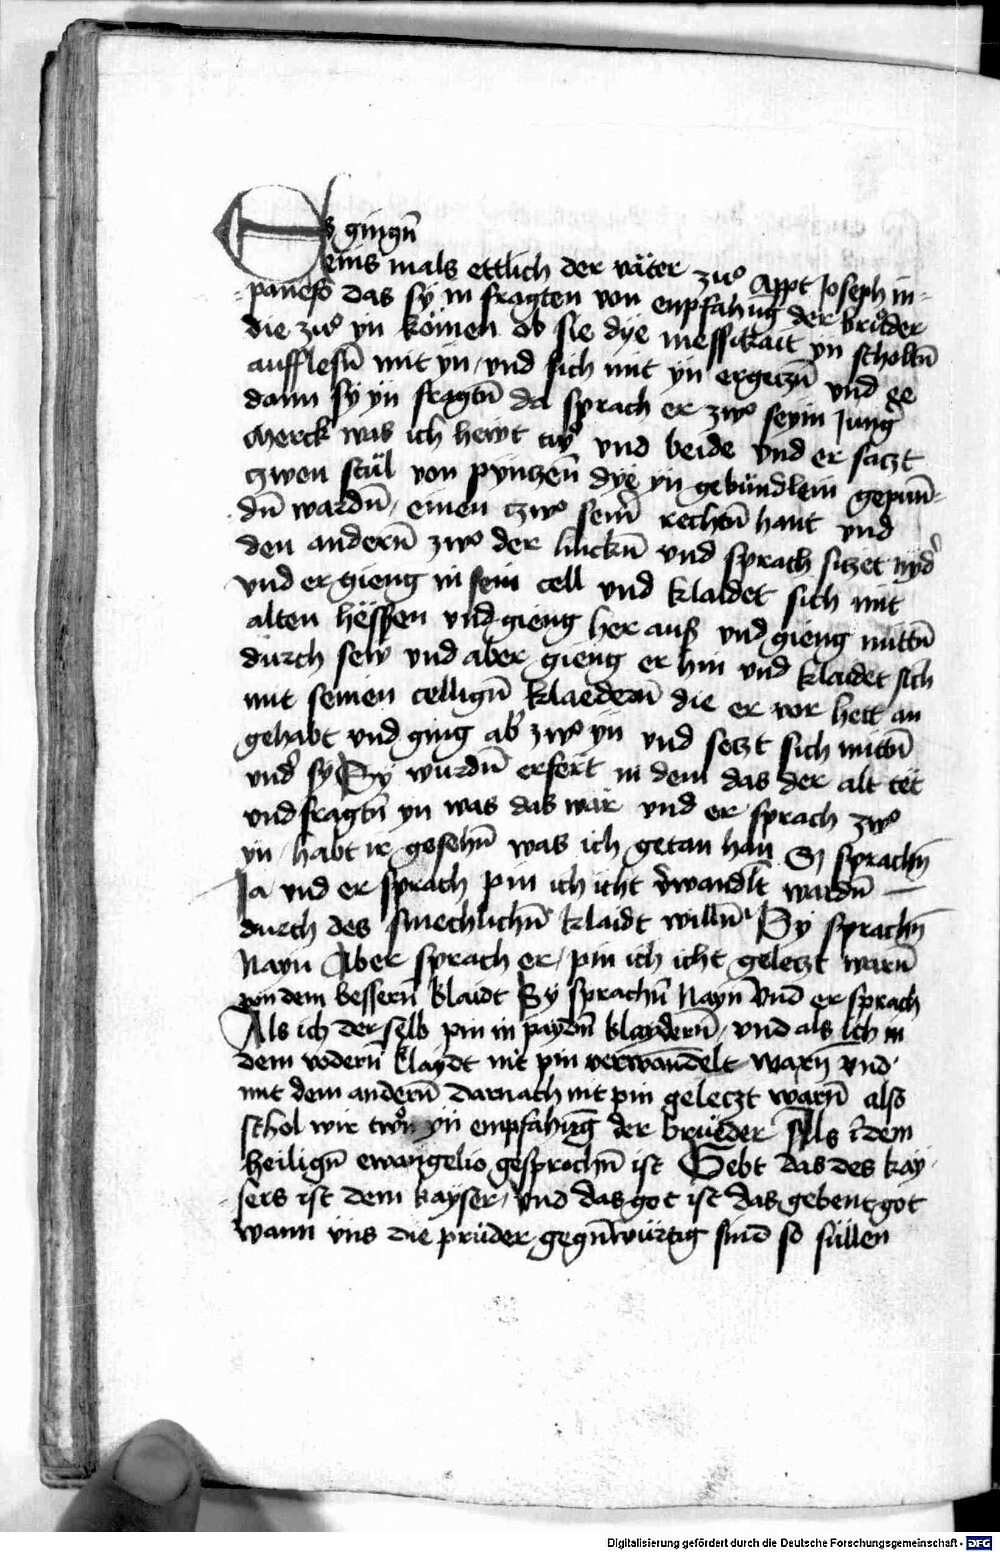 Es gingn̄
eins mals ettlich der väter zuͦ Appt Joseph in
panefo das sÿ in fragten von enpfahūg der brüder
die zuͦ yn kömen ob sie dÿe messikait yn scholtn̄
aufflesn̄ mit yn / vnd sich mit yn ergetzn̄ vnd ee
dann sÿ yn fragtn̄ da sprach er zwo seym Junḡ
Merck was ich hewt tuͦ vnd beide vnd er satzt
czwen stül von pyntzen̄ dÿe yn gebündlein gepun̄
dn̄ wardn̄ / einen czwo sein̄ rechtn̄ hant vnd
den andern̄ zwo der linckn̄ vnd sprach sitzet nyd̄
vnd er gieng in sein cell vnd klaidet sich mit
alten hëssen vnd gieng her auß vnd gieng mittn̄
durch sew vnd aber gieng er hin vnd klaidet sich
mit seinen cellign̄ klaedern̄ die er vor hett an
gehabt vnd ging ab̄ zwo yn vnd setzt sich mittn̄
vnd̄ sÿ Sy wurdn̄ erfert in dem das der alt tët
vnd fragtn̄ yn was das wär vnd er sprach zwo
yn / habt ir gesehn̄ was ich getan han Sÿ sprachn̄
Ja vnd er sprach pin ich icht v̄wandlt wardn̄
durch des smechlichn̄ klaidt willn̄ Sy sprachn̄
Nayn Aber sprach er / pin ich icht geletzt warn̄
von dem bessern̄ klaidt Sy sprachn̄ Nayn Vnd er sprach
Als ich der selb pin in paydn̄ klaydern̄ / vnd als ich in
dem vodern̄ klaydt nit pin verwandelt warn̄ vnd
mit dem andern̄ darnach nit pin geletzt warn̄ also
schol wir twͦn yn empfahūg der brüeder Als ī dem
heilign̄ ewangelio gesprochn̄ ist Gebt das des kay
sers ist dem kayser / vnd das got ist das gebent got
wann vns die prüder gegn̄würtig sind so süllen
Digitalisierung gefördert durch die Deutsche Forschungsgemeinschaft - DFG